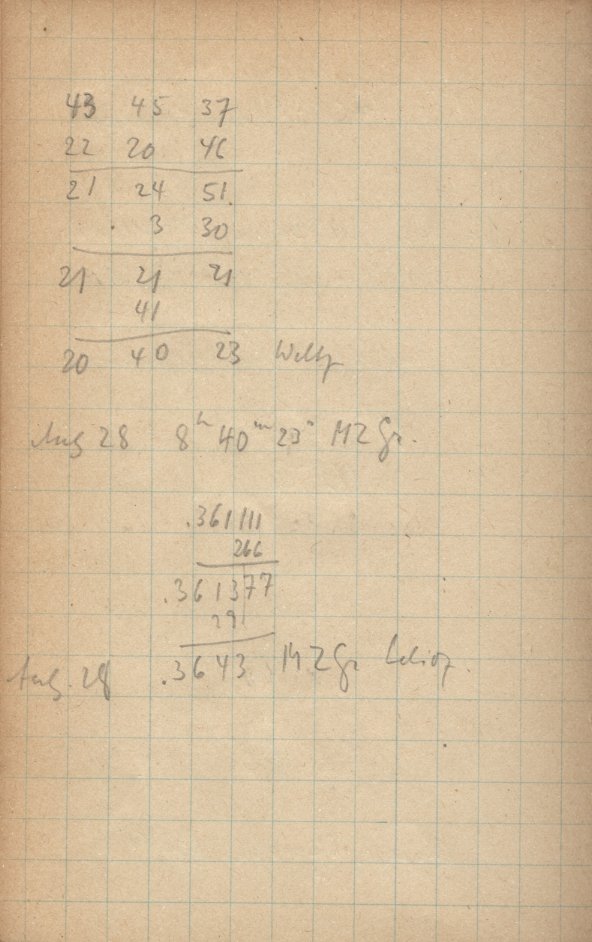 43 45 37
22 20 46
21 24 51.
3 30
21 21 21
41
20 40 23 Weltz
Aug 28 8h 40m 23s MZ Gr.
.361111
266
.361377
29
Aug. 28 .3643 MZ Gr helioz.